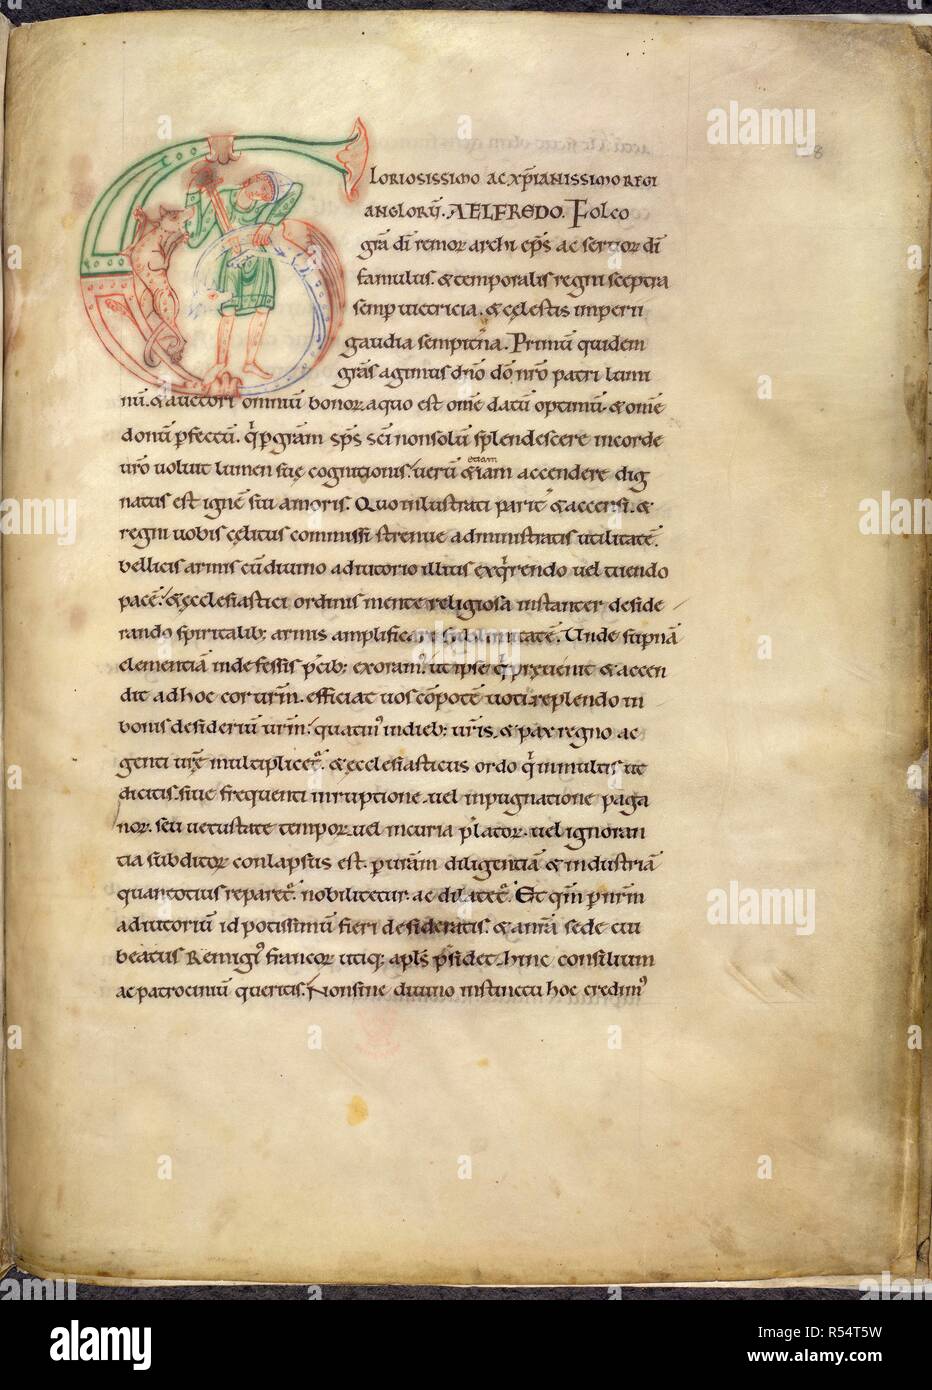 8
GLORIOSISSIMO AC XP̄IANISSIMO REGI
ANGLORṼ. AELFREDO. Folco
gr̄a dī remor archi ep̄s ac seruor dī
famulus. & temporalis regni sceptra
semp uictricia. & cęlestis imperii
gaudia sempit̄na. Primū quidem
gr̄as agimus dn̄o dō nr̄o patri lumi
nū. & auctori omniū bonor. a quo est om̄e datū optimū. & om̄e
donū p̄fectū. q̍ p gr̄am sp̄s sc̄i non solū splendescere in corde
ur̄o uoluit lumen suę cognitionis. uerū etiam &iam accendere dig
natus est ignē sui amoris. Quo inlustrati parit̄ & accensi. &
regni uobis cęlitus commissi strenue administratis utilitatē.
bellicis armis cū diuino adiutorio illius exq̍rendo uel tuendo
pacē. & ęcclesiastici ordinis mente religiosa instanter deside
rando spiritalib; armis amplificare sublimitatē. Unde supnā
clementiā indefessis p̄cib; exoram᾿. ut ipse q̍ pręuenit & accen
dit ad hoc cor ur̄m. efficiat uos cōpotē uoti. replendo in
bonis desideriū ur̄m. quatin᾿ in dieb; ur̄is. & pax regno ac
genti ur̄ę multiplicet᷑. & ęcclesiasticus ordo q̍ in multis ut
dicitis. siue frequenti irruptione uel inpugnatione paga
nor. seu uetustate tempor. uel incuria p̄lator. uel ignoran
tia subditor conlapsus est. p ur̄am diligentiā & industriā
quantotius reparet᷑. nobilitetur. ac dilatet᷑. Et qm̄ p nr̄m
adiutoriū id potissimū fieri desideratis. & a nr̄a sede cui
beatus Remigi᾿ francor utiq; apl̄s p̄sidet. hinc consilium
ac patrociniū queritis. Non sine diuino instinctu hoc credim᾿
alamy
a
alamy
Image ID: R54T5W
www.alamy.com